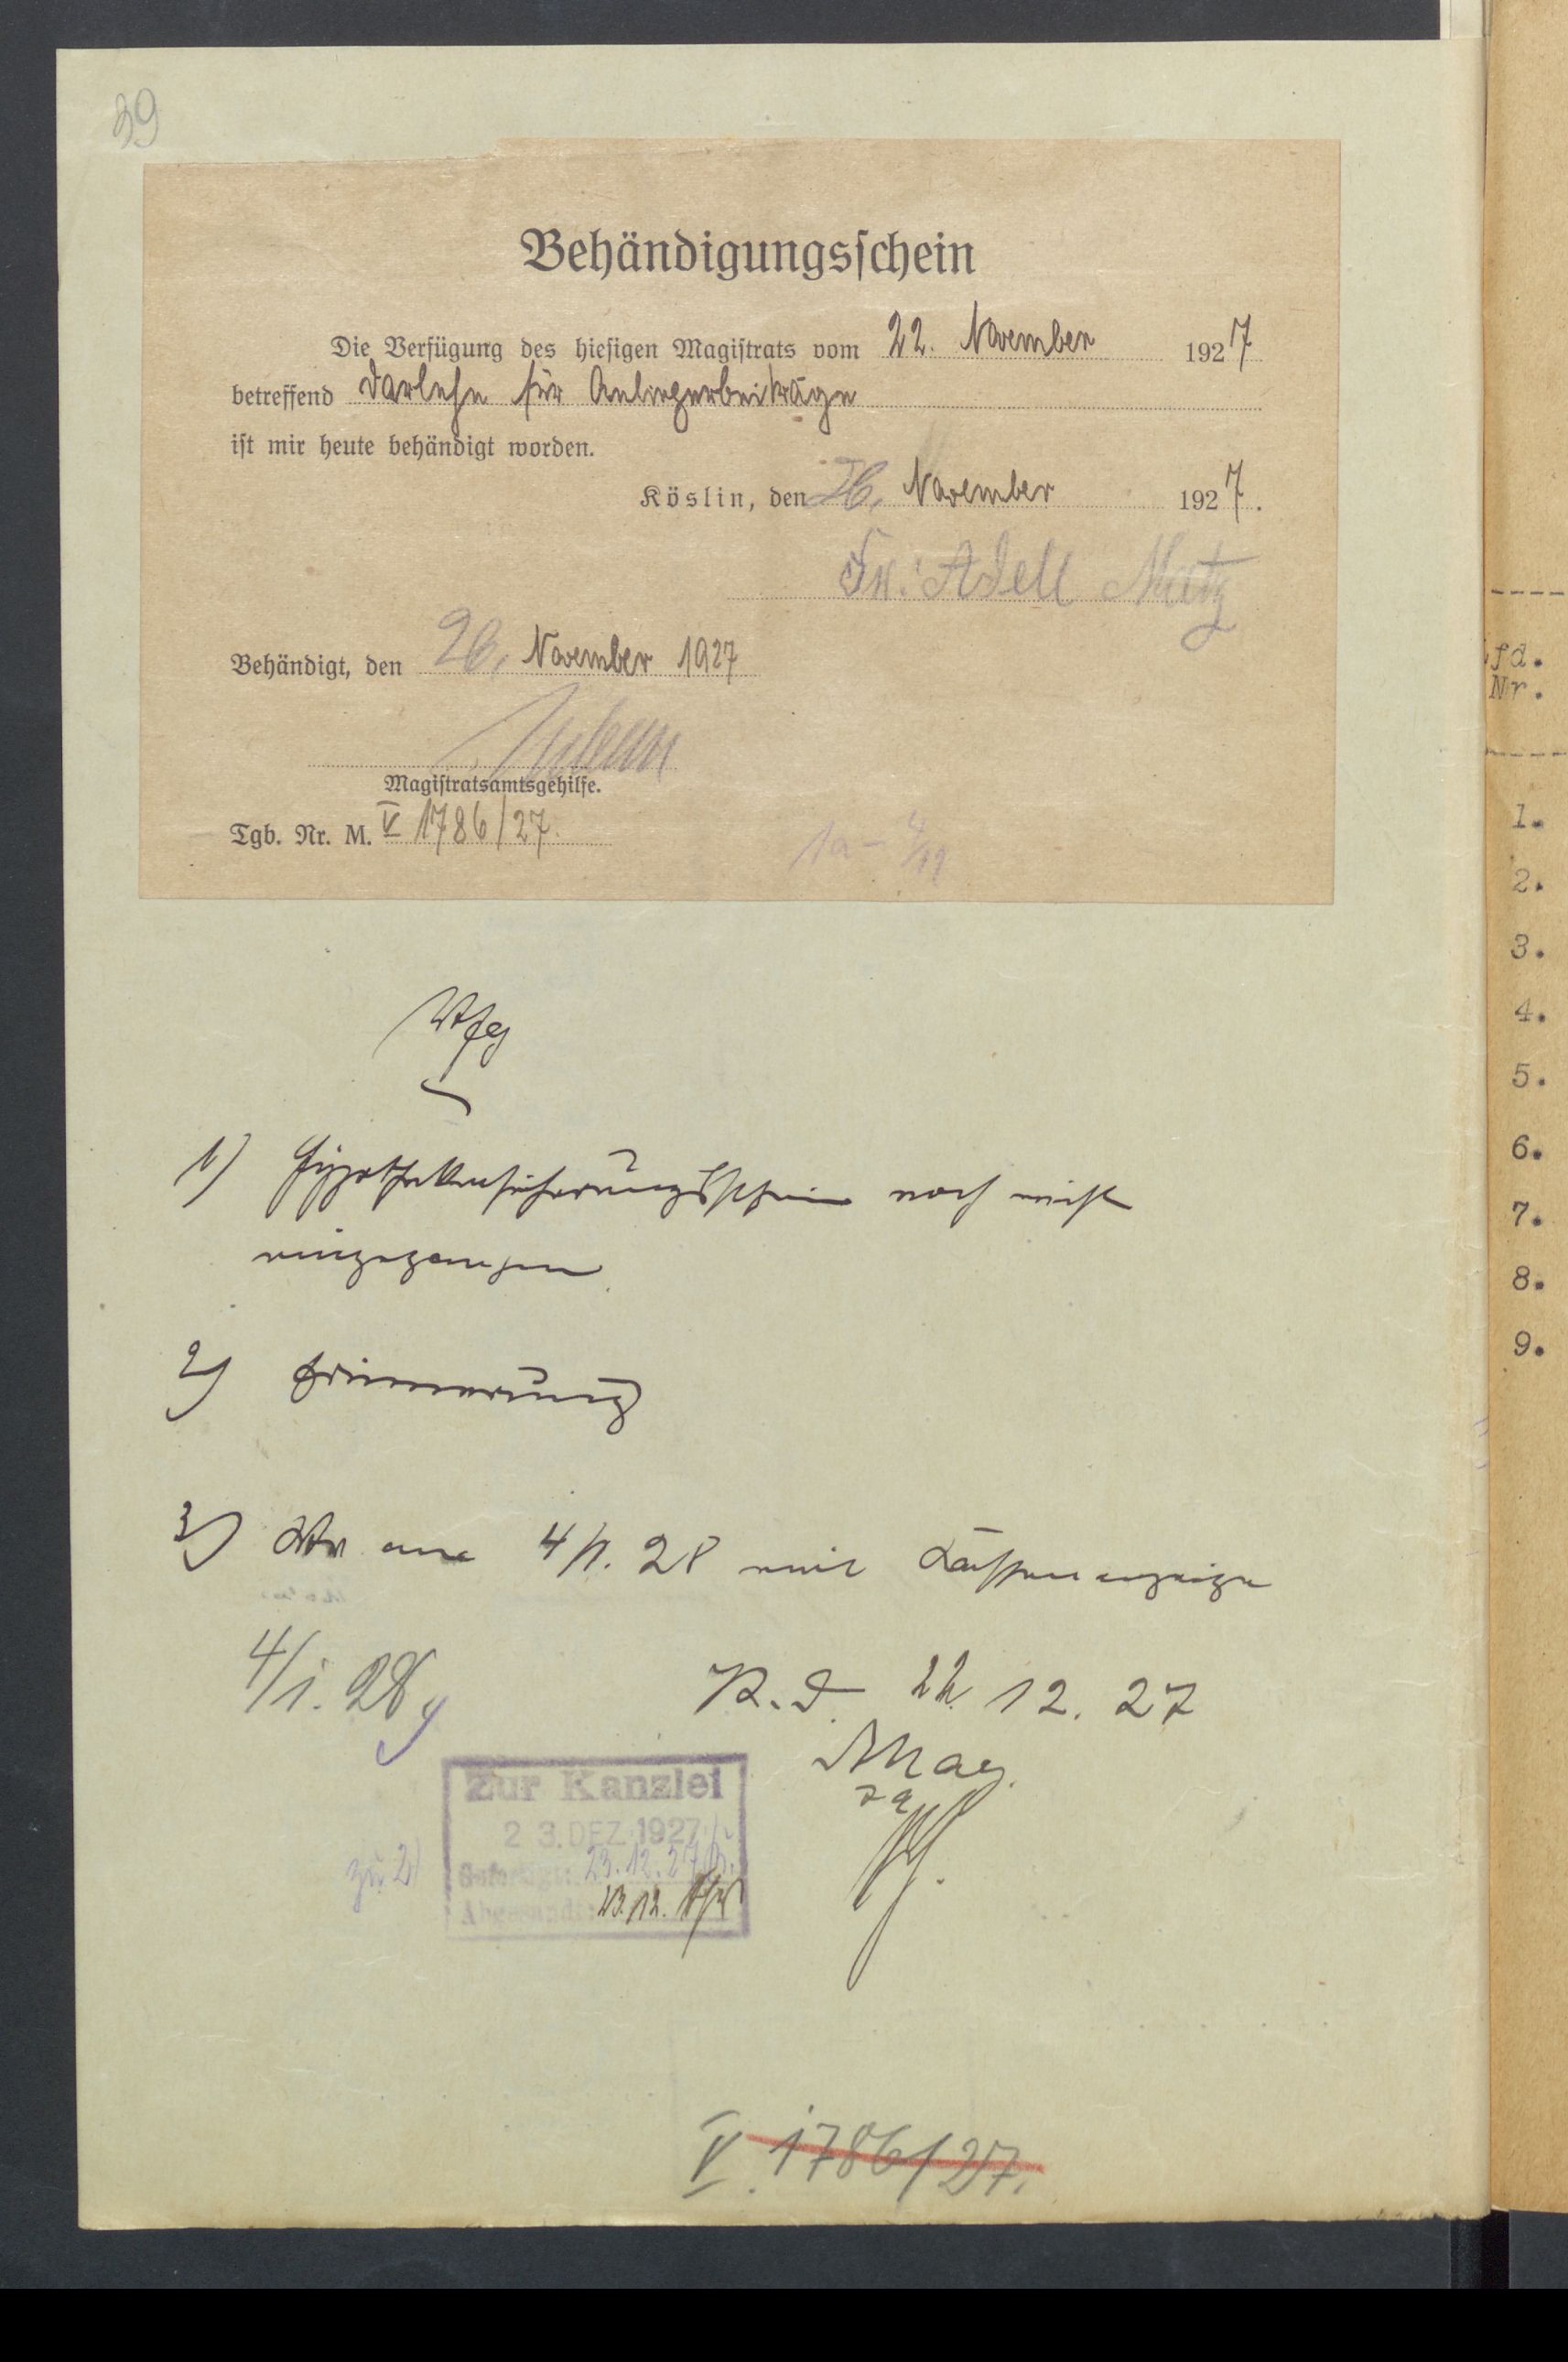 39
Behändigungsschein
Die Verfügung des hiesigen Magistrats vom 22. November 1927
betreffend Darlehn für Anliegerbeiträge
ist mir heute behändigt worden.
Köslin, den 26. November 1927.
Fr. Adell Metz
Behändigt, den 26. November 1927
Magistratsamtsgehilfe.
Tgb. Nr. M. V 1786/27.
Vfg
1) Hypothekensicherungsschein noch nicht
eingegangen
2) Erinnerung
3) Wv am 4/1. 28 mit Kassenanzeige
4/1. 28
K. d. 22. 12. 27
Mag.
Zur Kanzlei
23. DEZ. 1927
zu 2)
Gefertigt: 23.12.27
Abgesandt: 23.12.
V. 1786/27.
fd.
Nr.
1.
2.
3.
4.
5.
6.
7.
8.
9.